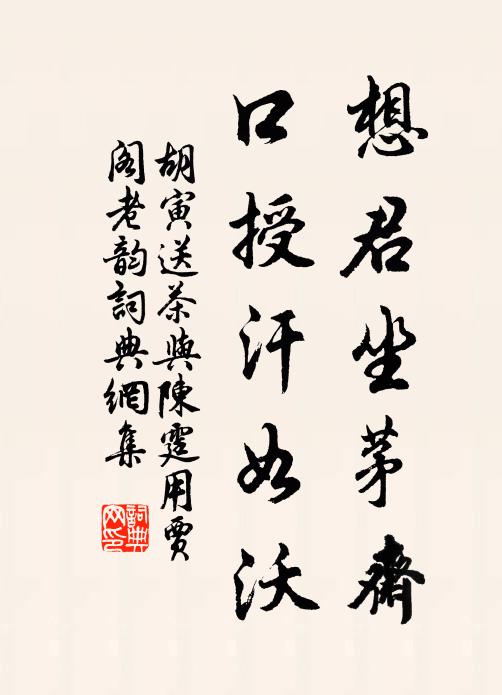 想君坐茅齋
口授汗如沃
胡寅送茶與陳霆用賈
閣老韵詞典網集
詞典网印